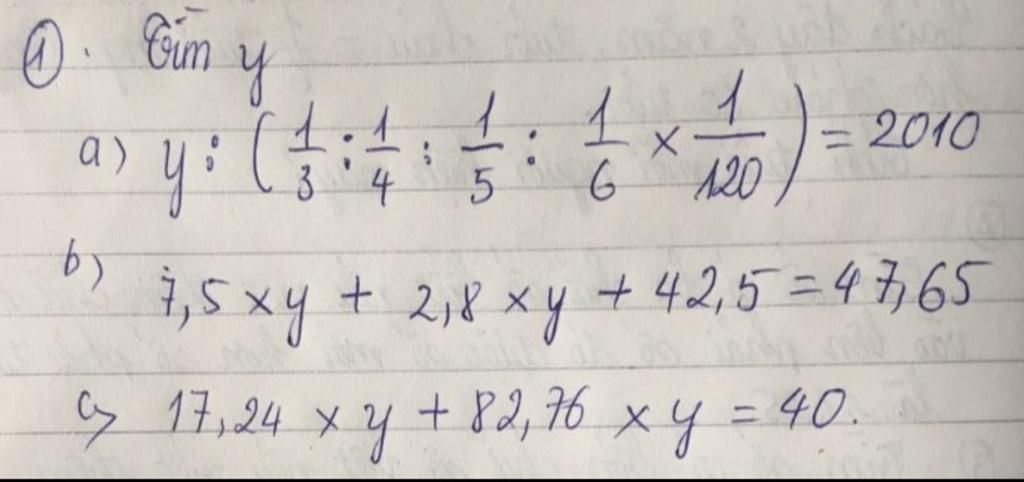 ①. Tìm y
a) y : (1/3 : 1/4 : 1/5 : 1/6 × 1/120) = 2010
b) 7,5 × y + 2,8 × y + 42,5 = 47,65
c) 17,24 × y + 82,76 × y = 40.